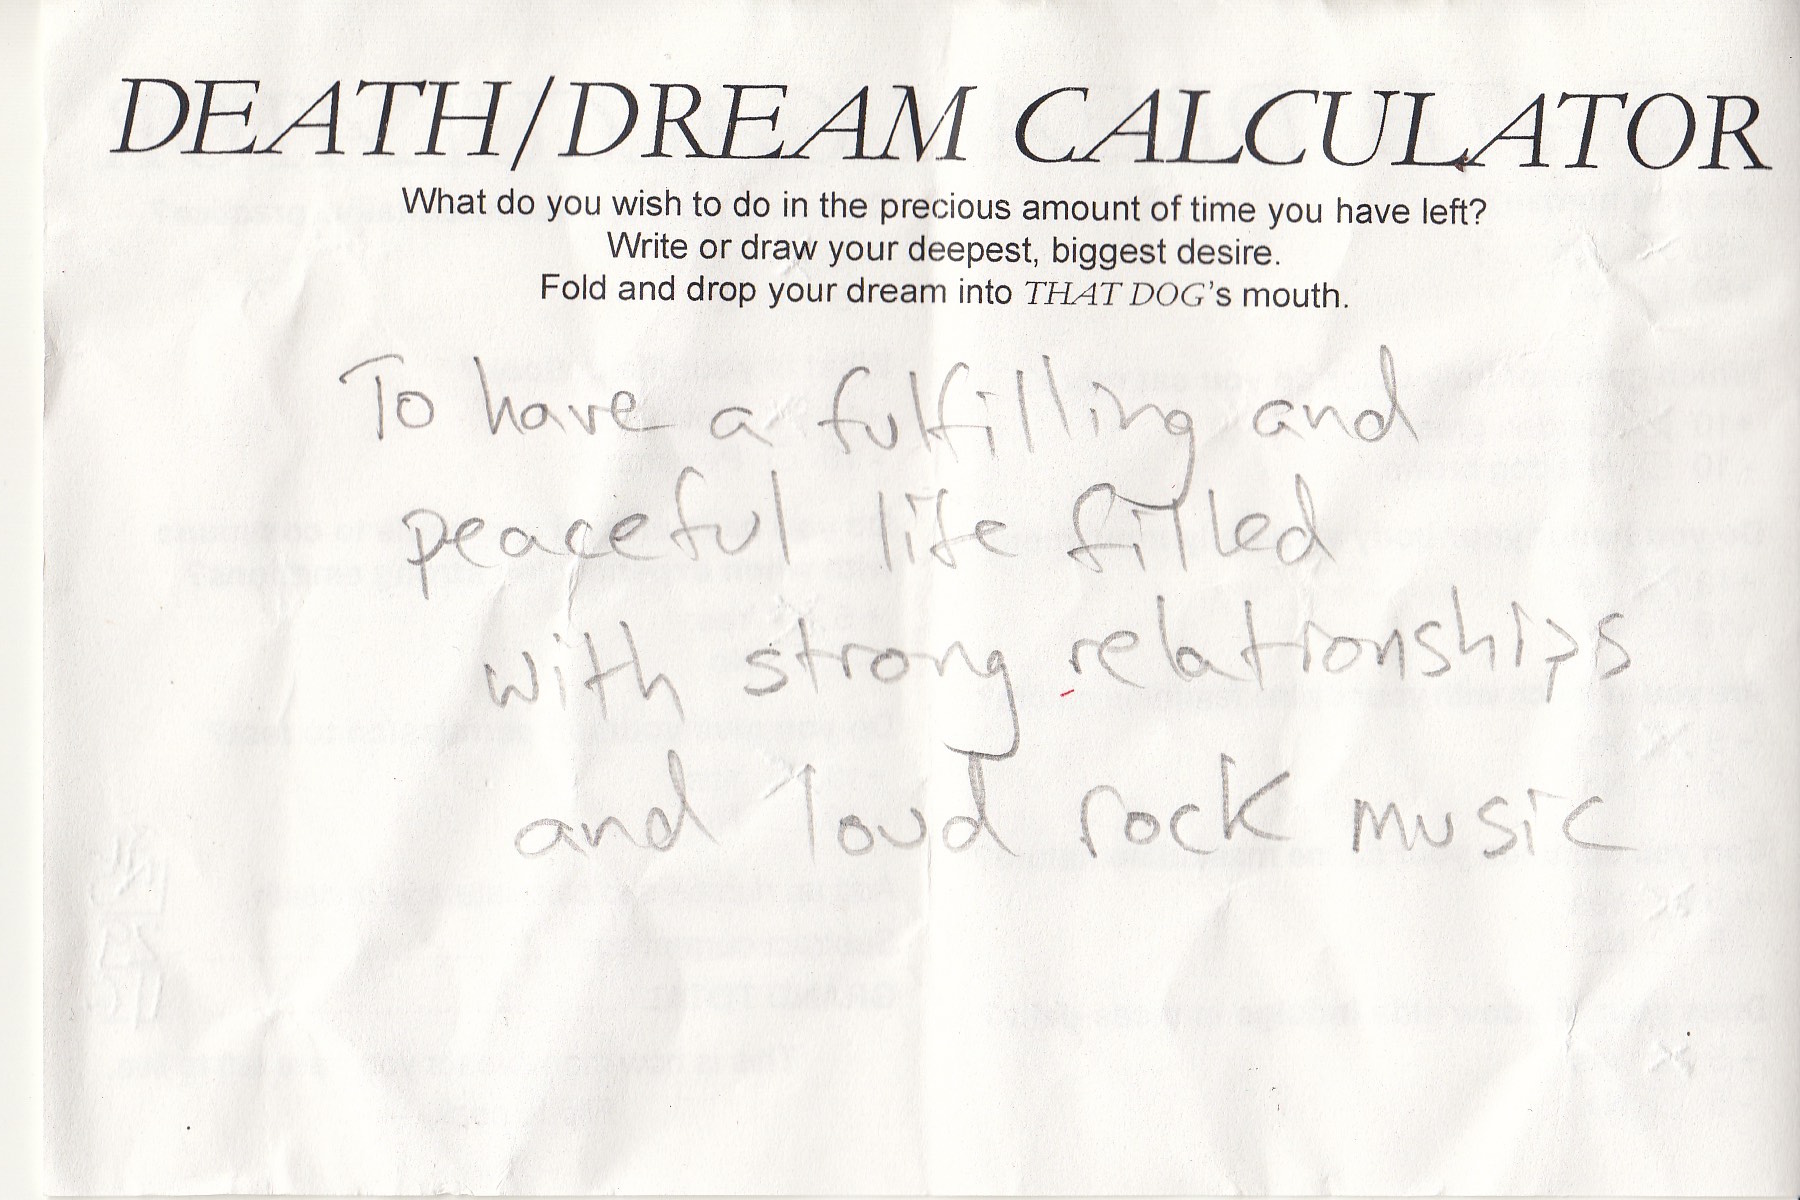 DEATH/DREAM CALCULATOR
What do you wish to do in the precious amount of time you have left?
Write or draw your deepest, biggest desire.
Fold and drop your dream into THAT DOG's mouth.
To have a fulfilling and
peaceful life filled
with strong relationships
and loud rock music